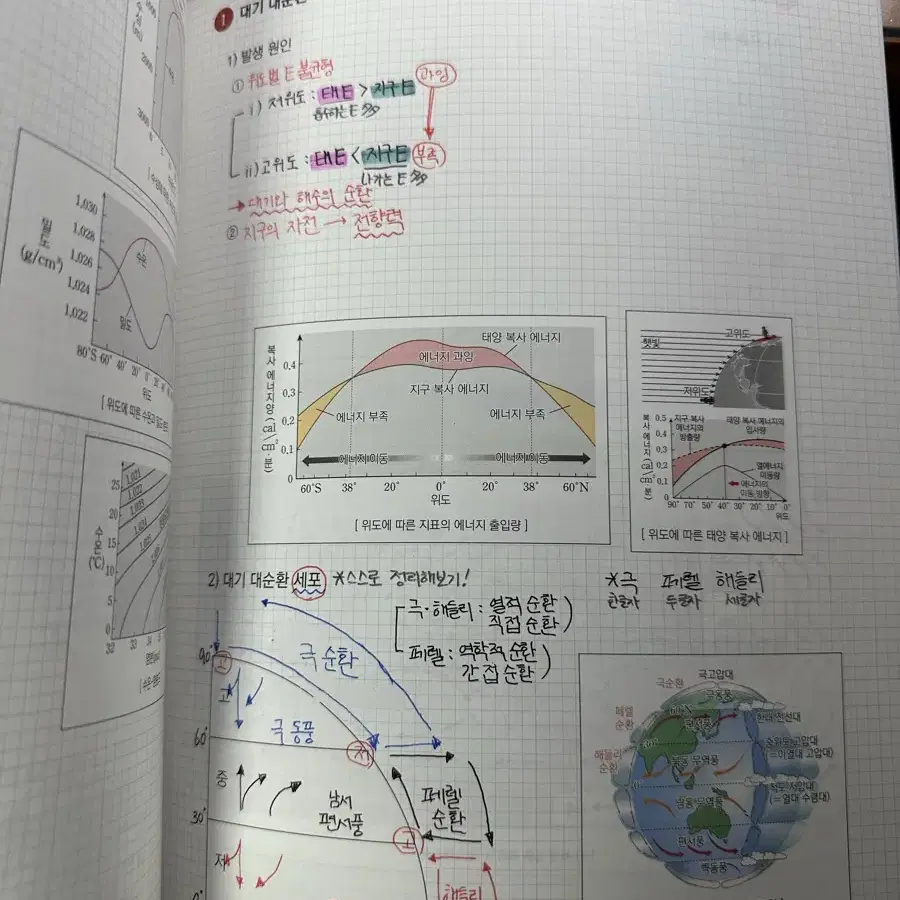 1 대기 대순환
1) 발생 원인
① 위도별 E 불균형
i) 저위도 : 태E > 지구E 과잉
흡수하는 E
ii) 고위도 : 태E < 지구E 부족
나가는 E
→ 대기와 해수의 순환
② 지구의 자전 → 전향력
복사 에너지양 (cal/cm²·분)
0.4
0.3
0.2
0.1
0
태양 복사 에너지
에너지 과잉
지구 복사 에너지
에너지 부족
에너지 부족
에너지 이동
에너지 이동
60°S 38° 20° 0° 20° 38° 60°N
위도
[ 위도에 따른 지표의 에너지 출입량 ]
고위도
햇빛
저위도
복사 에너지 (cal/cm²·분)
0.5
0.4
0.3
0.2
0.1
0
지구 복사 에너지의 방출량
태양 복사 에너지의 입사량
열에너지 이동량
에너지의 이동 방향
90° 70° 60° 50° 40° 30° 20° 10° 0°
위도
[ 위도에 따른 태양 복사 에너지 ]
2) 대기 대순환 세포 *스스로 정리해보기!
극·해들리 : 열적 순환
직접 순환
페렐 : 역학적 순환
간접 순환
*극 페렐 해들리
한글자 두글자 세글자
90°
고
고
극 순환
극동풍
60°
저
중
남서
편서풍
페렐
순환
30°
고
저
해들리
0°
극고압대
극순환
극동풍
페렐
순환
60°N
편서풍
한대 전선대
해들리
순환
30°
북동 무역풍
중위도 고압대
(=아열대 고압대)
0°
남동 무역풍
적도 저압대
(=열대 수렴대)
편서풍
극동풍
수심 (m)
2000
3000
밀도 (g/cm³)
1.030
1.028
1.026
1.024
1.022
수온
밀도
80°S 60° 40° 20° 0° 20°
위도
[ 위도에 따른 수온과 밀도
수온 (℃)
25
20
15
10
5
0
1.021
1.022
1.023
1.024
1.025
32 33 34